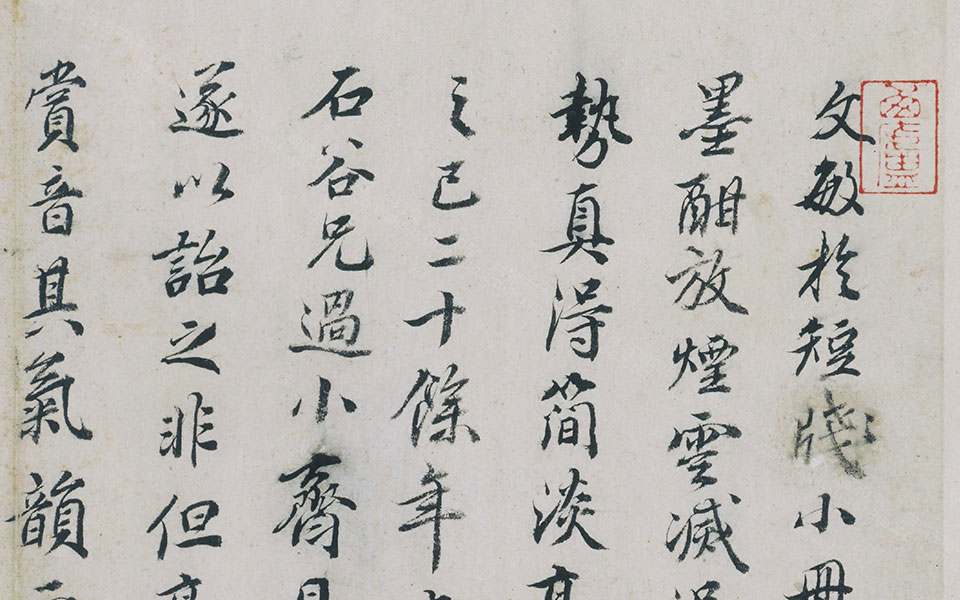 文敏於短牋小冊
墨酣放煙雲滅
勢真得簡淡高
之已二十餘年
石谷兄過小齋見
遂以詒之非但高
賞音其氣韻